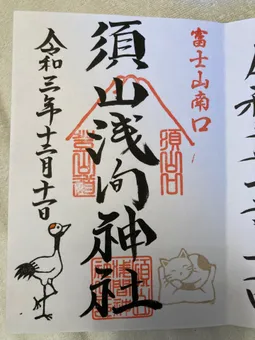 富士山南口
須山口
須山浅間神社
登山道
令和三年十二月十一日